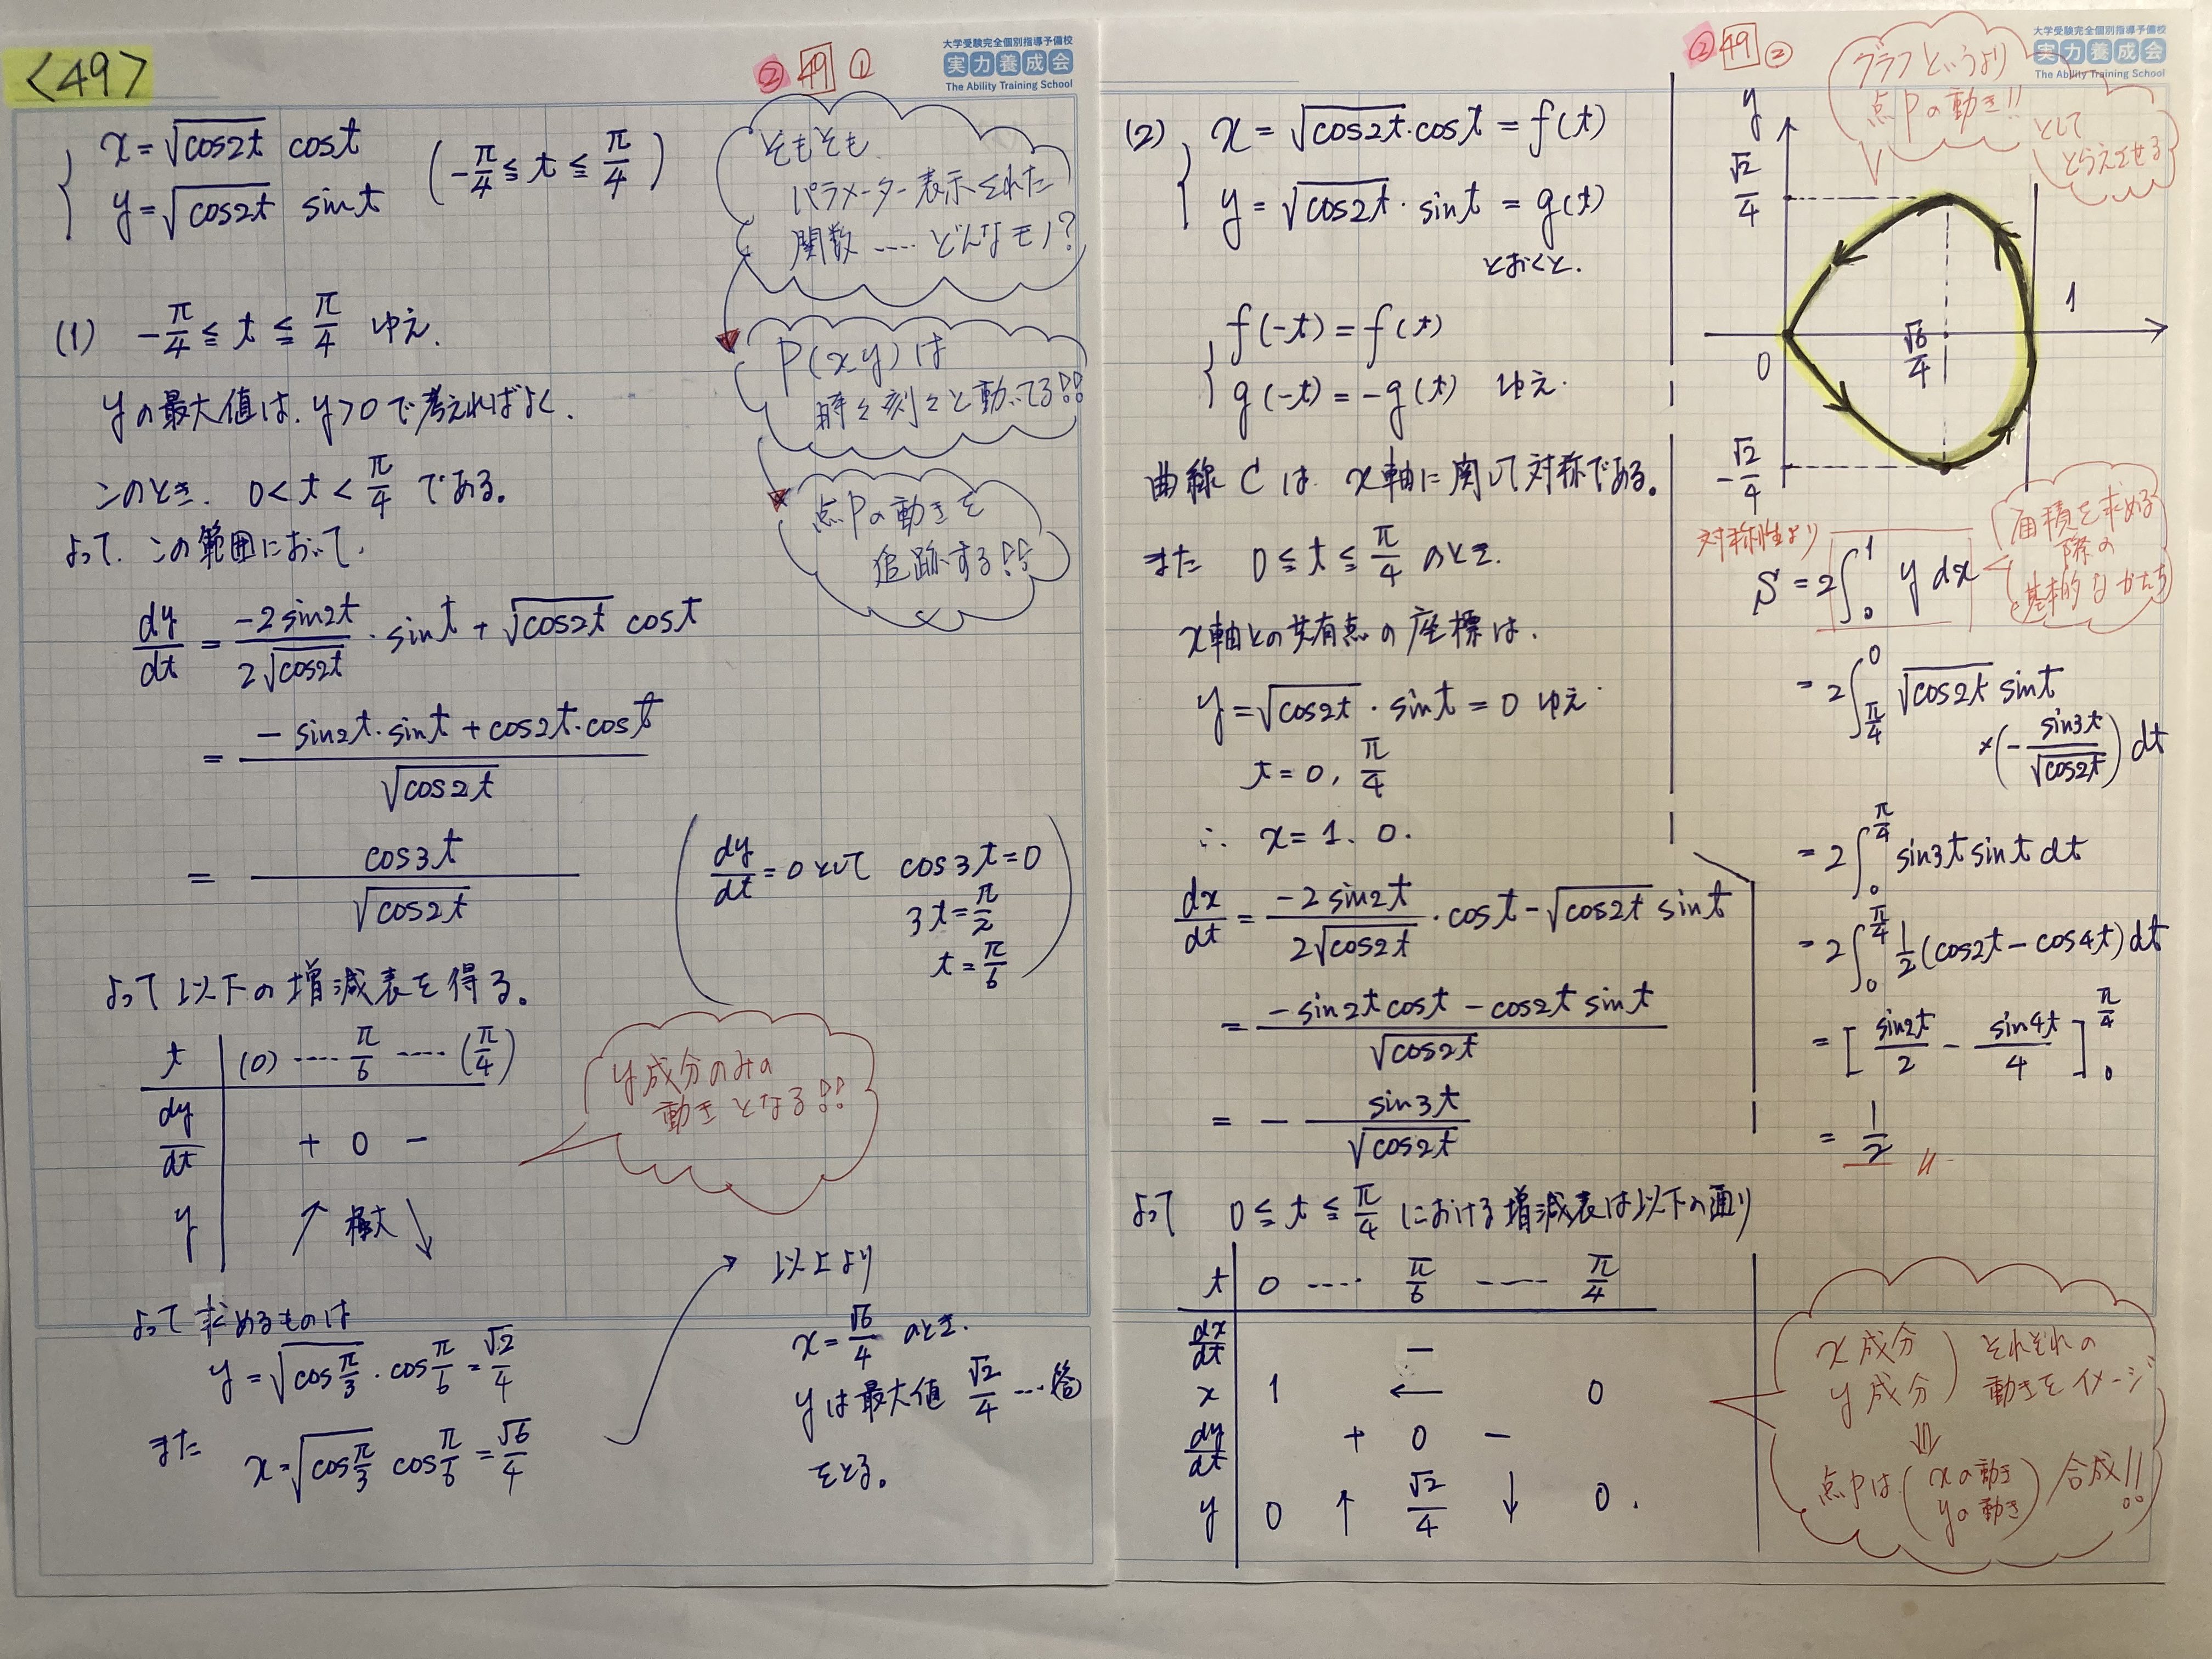 <49>
② 49 ①
大学受験完全個別指導予備校
実力養成会
The Ability Training School
x=√cos2t cost
y=√cos2t sint
(-π/4 ≦ t ≦ π/4)
そもそも
パラメーター表示された
関数……どんなモノ?
(1) -π/4 ≦ t ≦ π/4 ゆえ.
P(x,y)は
時々刻々と動いてる!!
yの最大値は, y>0で考えればよく.
このとき. 0<t<π/4 である。
点Pの動きを
追跡する!!
よって. この範囲において.
dy/dt = -2sin2t/2√cos2t・sint+√cos2t cost
= -sin2t・sint+cos2t・cost/√cos2t
= cos3t/√cos2t
(dy/dt=0として cos3t=0
3t=π/2
t=π/6)
よって以下の増減表を得る。
t (0) …… π/6 …… (π/4)
dy/dt + 0 -
y ↗ 極大 ↘
y成分のみの
動きとなる!!
よって求めるものは
y=√cosπ/3・cosπ/6=√2/4
また x=√cosπ/3 cosπ/6=√6/4
以上より
x=√6/4 のとき.
yは最大値 √2/4 …答
をとる。
② 49 ②
大学受験完全個別指導予備校
実力養成会
The Ability Training School
(2) x=√cos2t・cost=f(t)
y=√cos2t・sint=g(t)
とおくと.
f(-t)=f(t)
g(-t)=-g(t) ゆえ.
曲線Cは x軸に関して対称である。
また 0≦t≦π/4 のとき.
x軸との共有点の座標は.
y=√cos2t・sint=0 ゆえ
t=0, π/4
∴ x=1、0.
dx/dt = -2sin2t/2√cos2t・cost-√cos2t sint
= -sin2t cost-cos2t sint/√cos2t
= - sin3t/√cos2t
よって 0≦t≦π/4 における増減表は以下の通り
t 0 …… π/6 …… π/4
dx/dt -
x 1 ← 0
dy/dt + 0 -
y 0 ↑ √2/4 ↓ 0.
グラフというより
点Pの動き!!
として
とらえさせる
y
√2/4
0
√6/4
1
-√2/4
対称性より
S=2∫₀¹ y dx
面積を求める
際の
基本的なかたち
=2∫_{π/4}^{0} √cos2t sint
×(-sin3t/√cos2t)dt
=2∫_{0}^{π/4} sin3t sint dt
=2∫_{0}^{π/4} 1/2(cos2t-cos4t)dt
=[sin2t/2 - sin4t/4]_{0}^{π/4}
=1/2 〃
x成分
y成分) それぞれの
動きをイメージ
⇓
点Pは(xの動き
yの動き) 合成!!